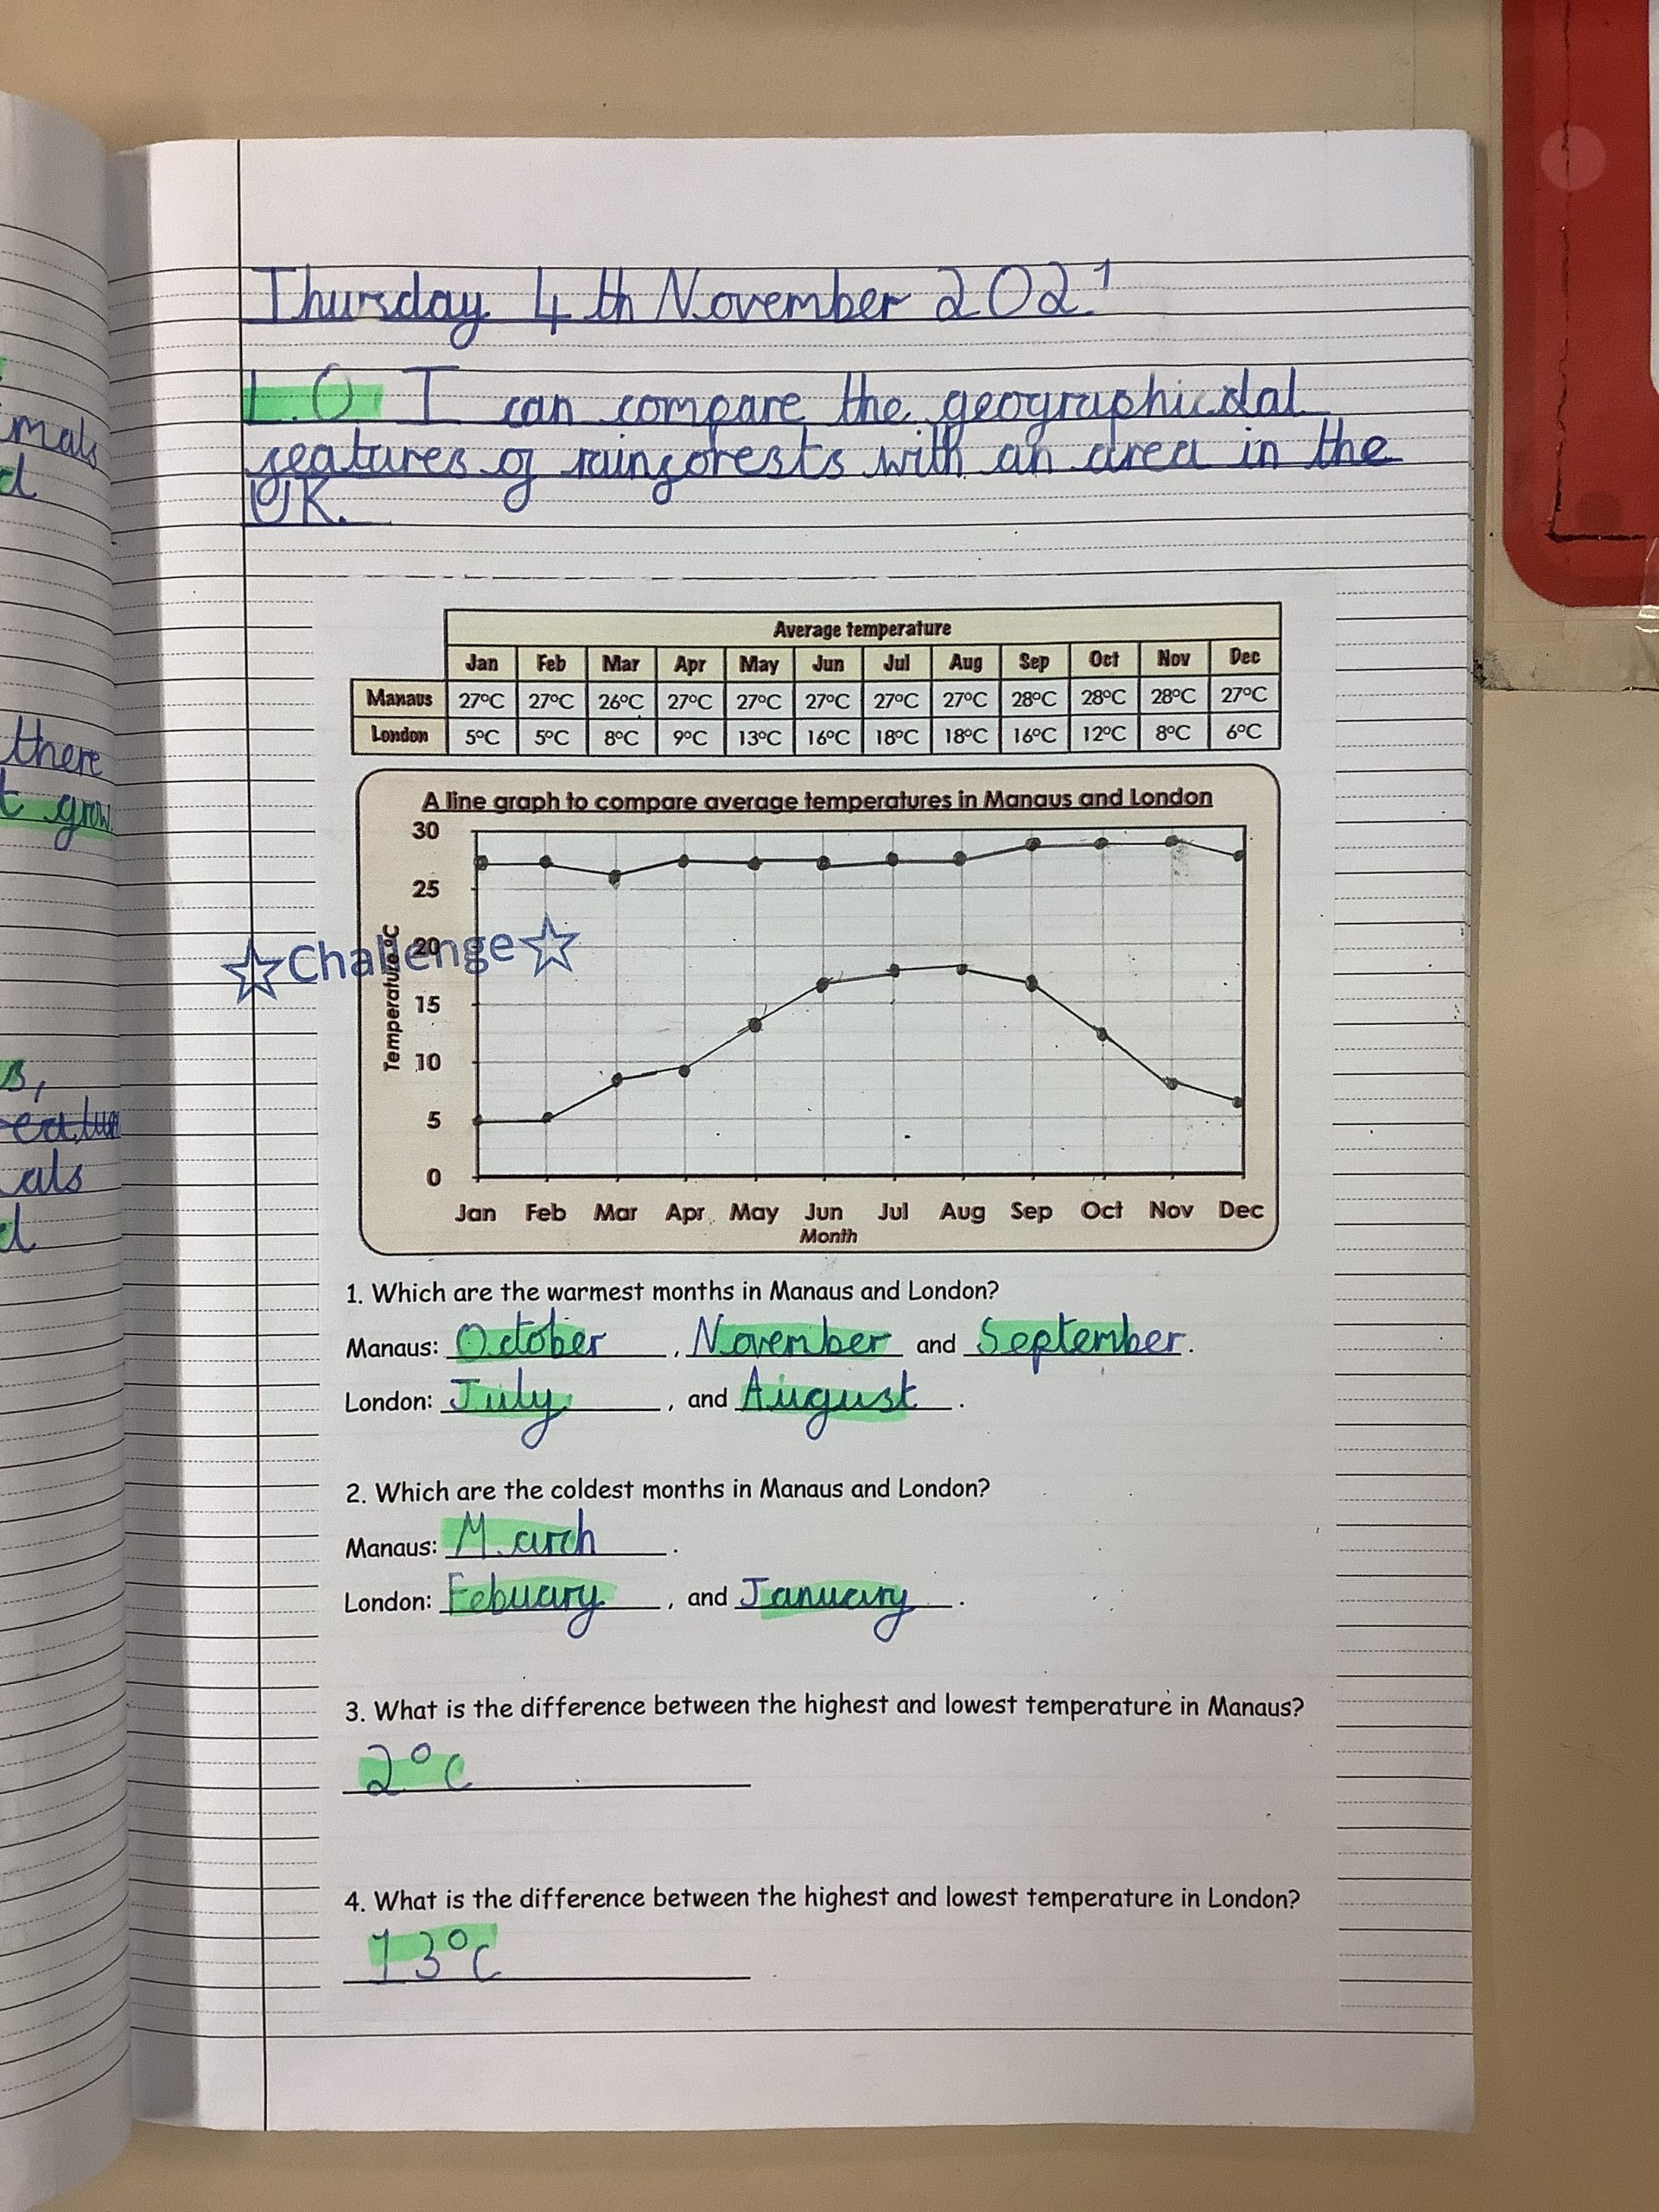 mals
d
there
t grow
s,
als
d
Thursday 4th November 2021
L.O. I can compare the geographical
features of rainforests with an area in the
UK.
Average temperature
Jan Feb Mar Apr May Jun Jul Aug Sep Oct Nov Dec
Manaus 27°C 27°C 26°C 27°C 27°C 27°C 27°C 27°C 28°C 28°C 28°C 27°C
London 5°C 5°C 8°C 9°C 13°C 16°C 18°C 18°C 16°C 12°C 8°C 6°C
A line graph to compare average temperatures in Manaus and London
30
25
20
15
10
5
0
Temperature °C
☆Challenge☆
Jan Feb Mar Apr May Jun Jul Aug Sep Oct Nov Dec
Month
1. Which are the warmest months in Manaus and London?
Manaus: October, November and September.
London: July, and August.
2. Which are the coldest months in Manaus and London?
Manaus: March.
London: Febuary, and January.
3. What is the difference between the highest and lowest temperature in Manaus?
2°c
4. What is the difference between the highest and lowest temperature in London?
13°c